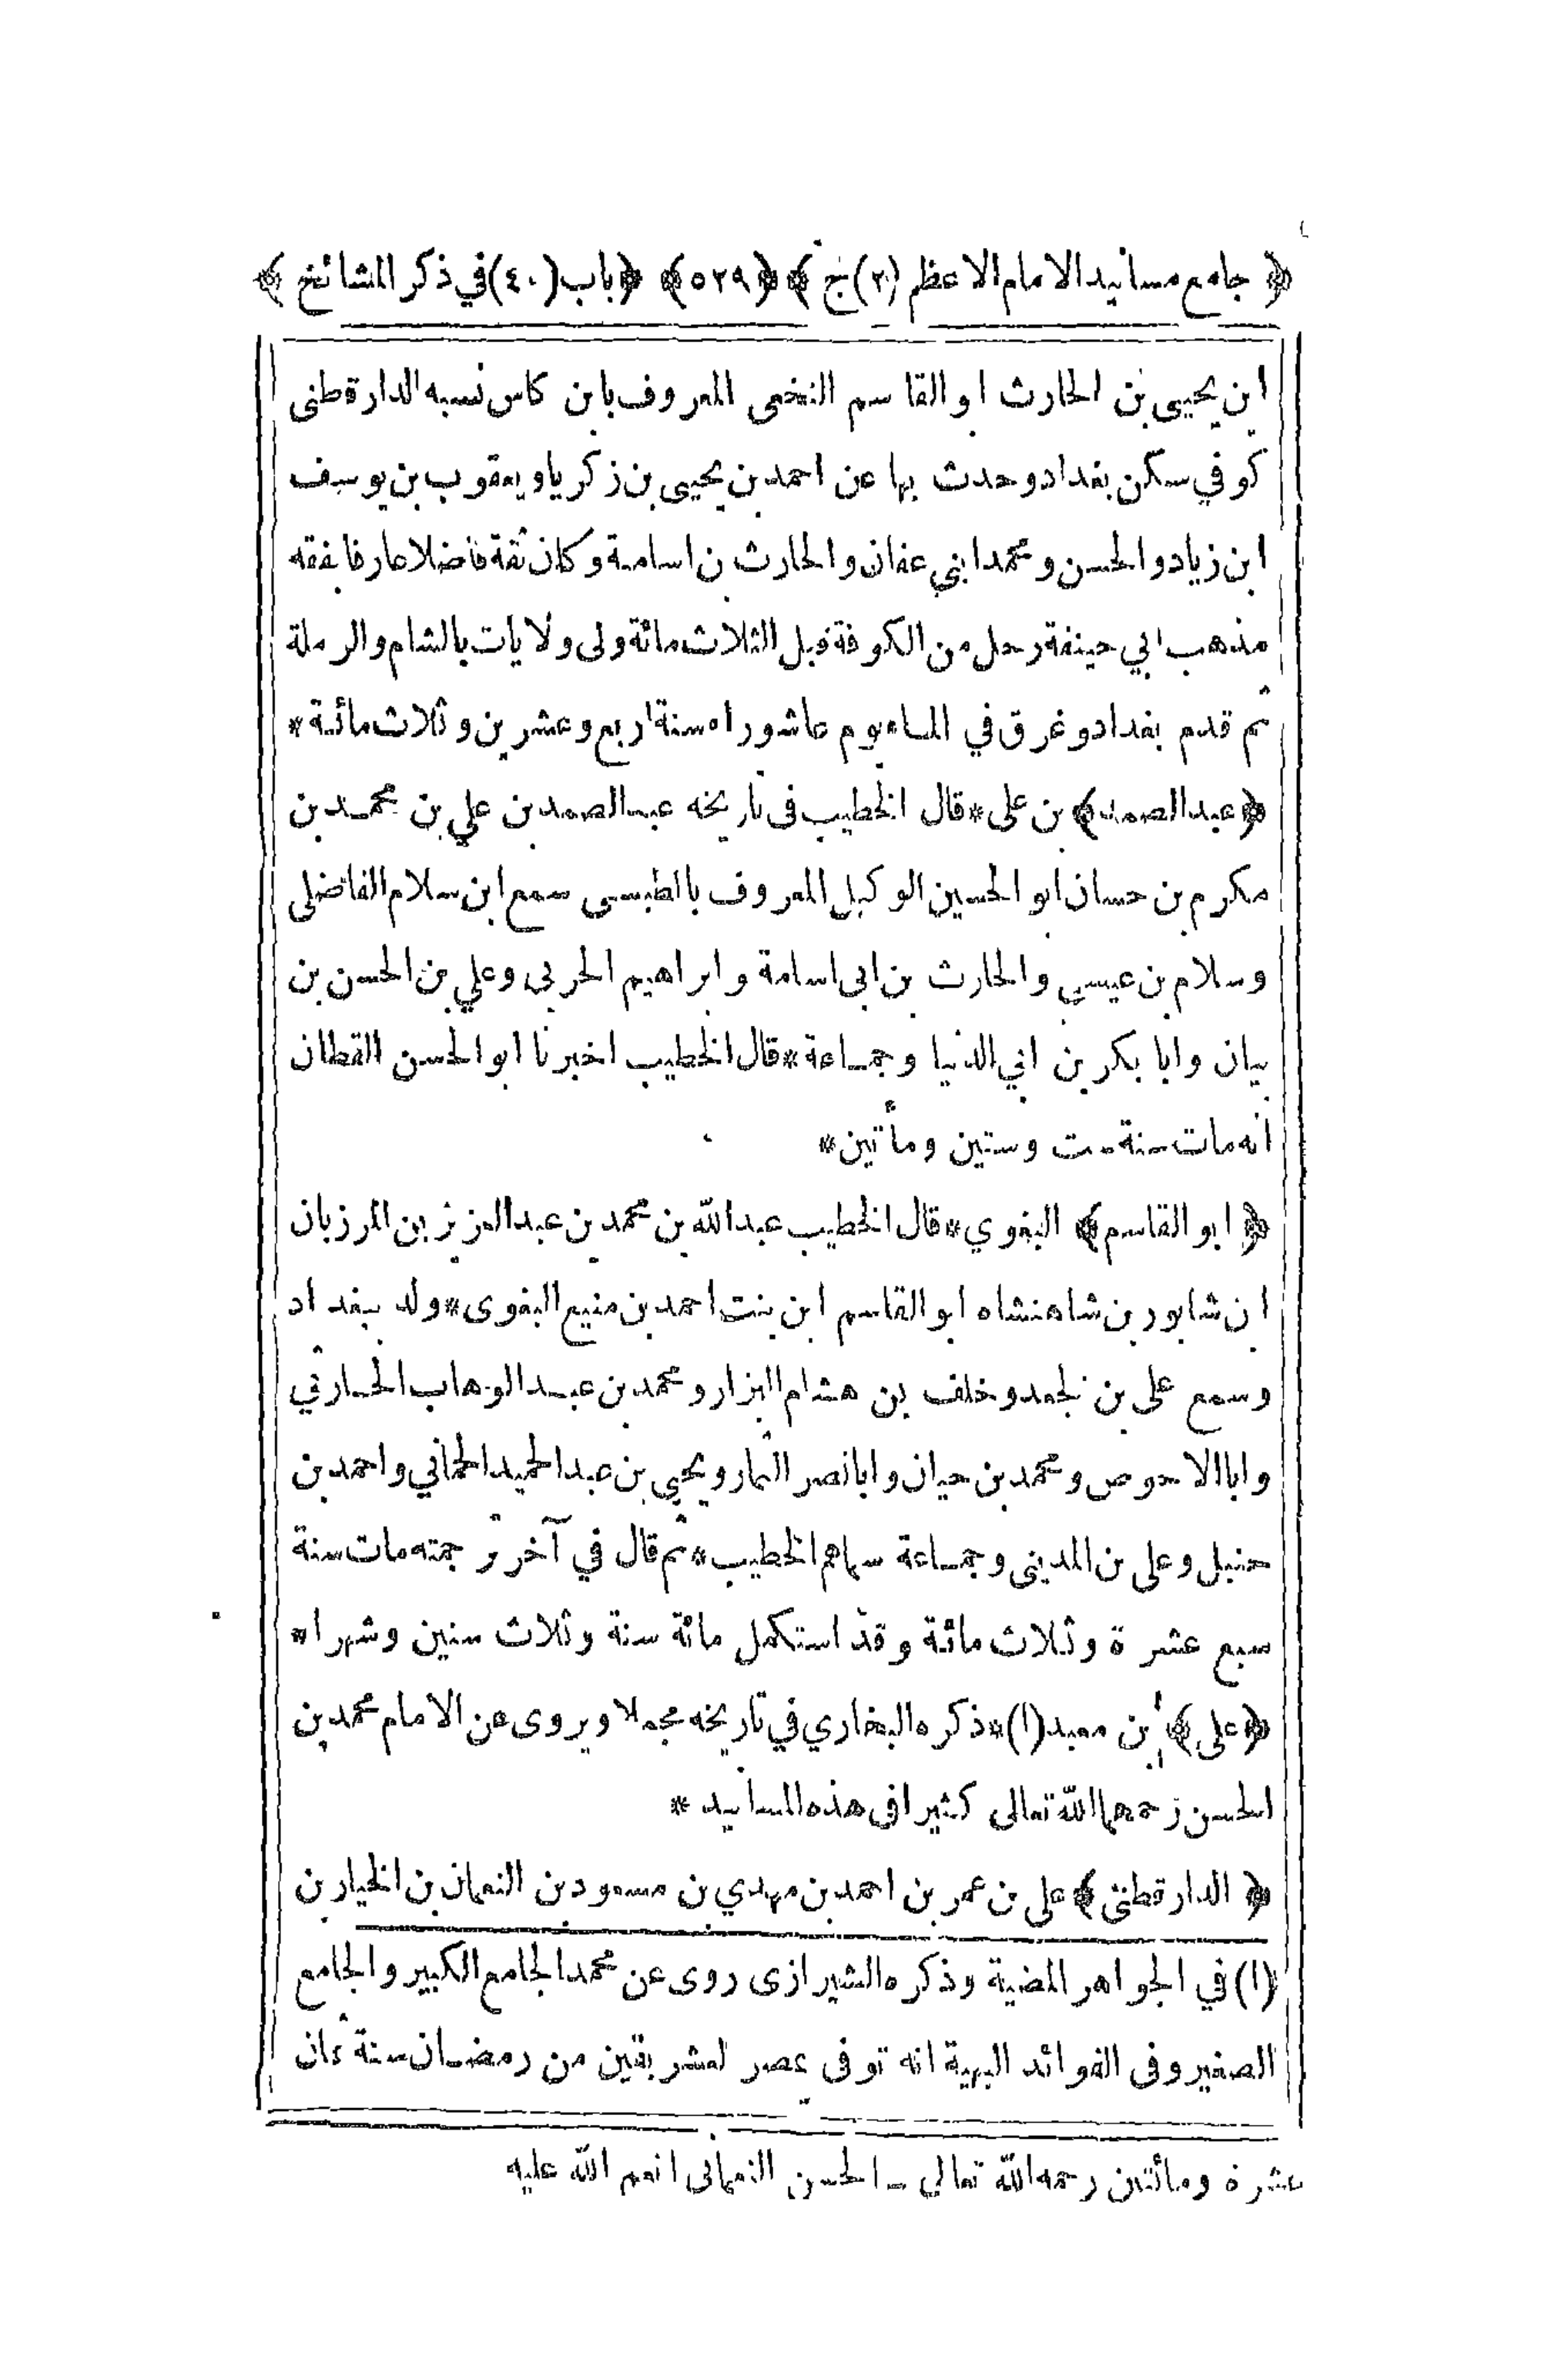 ﴿ جامع مسانيد الامام الاعظم (٢) ج ﴾ ﴿٥٢٩﴾ ﴿ باب (٤٠) في ذكر المشائخ ﴾
ابن يحيى بن الحارث ابو القاسم النخعى المعروف بابن كاس نسبه الدارقطنى
كوفي سكن بغداد وحدث بها عن احمد بن يحيى بن زكريا ويعقوب بن يوسف
ابن زياد والحسن ومحمد ابني عفان والحارث بن اسامة وكان ثقة فاضلا عارفا بفقه
مذهب ابي حنيفة رحل من الكوفة قبل الثلاث مائة ولى ولايات بالشام والرملة
ثم قدم بغداد وغرق في الماء يوم عاشوراه سنة اربع وعشرين وثلاث مائة *
﴿عبد الصمد﴾ بن على * قال الخطيب فى تاريخه عبد الصمد بن علي بن محمد بن
مكرم بن حسان ابو الحسين الوكيل المعروف بالطبسى سمع ابن سلام الفاضلى
وسلام بن عيسى والحارث بن ابى اسامة وابراهيم الحربى وعلي بن الحسن بن
بيان وابا بكر بن ابي الدنيا وجماعة * قال الخطيب اخبرنا ابو الحسن القطان
انه مات سنة ست وستين ومأتين *
﴿ ابو القاسم﴾ البغوي * قال الخطيب عبد الله بن محمد بن عبد العزيز بن المرزبان
ابن شابور بن شاهنشاه ابو القاسم ابن بنت احمد بن منيع البغوى * ولد ببغداد
وسمع على بن الجعد وخلف بن هشام البزار ومحمد بن عبد الوهاب الحارثي
وابا الاحوص ومحمد بن حيان وابا نصر التمار ويحيى بن عبد الحميد الحماني واحمد بن
حنبل وعلى بن المدينى وجماعة سماهم الخطيب * ثم قال في آخر ترجمته مات سنة
سبع عشرة وثلاث مائة وقد استكمل مائة سنة وثلاث سنين وشهرا *
﴿على﴾ بن معبد (١) * ذكره البخاري في تاريخه مجملا ويروى عن الامام محمد بن
الحسن رحمهما الله تعالى كثيرا فى هذه المسانيد *
﴿ الدارقطنى ﴾ على بن عمر بن احمد بن مهدي بن مسعود بن النعمان بن الخيار بن
(١) في الجواهر المضية وذكره الشيرازى روى عن محمد الجامع الكبير والجامع
الصغير وفى الفوائد البهية انه توفى عصر لعشر بقين من رمضان سنة ثمان
عشرة ومأتين رحمه الله تعالى ـ الحسن النعمانى انعم الله عليه